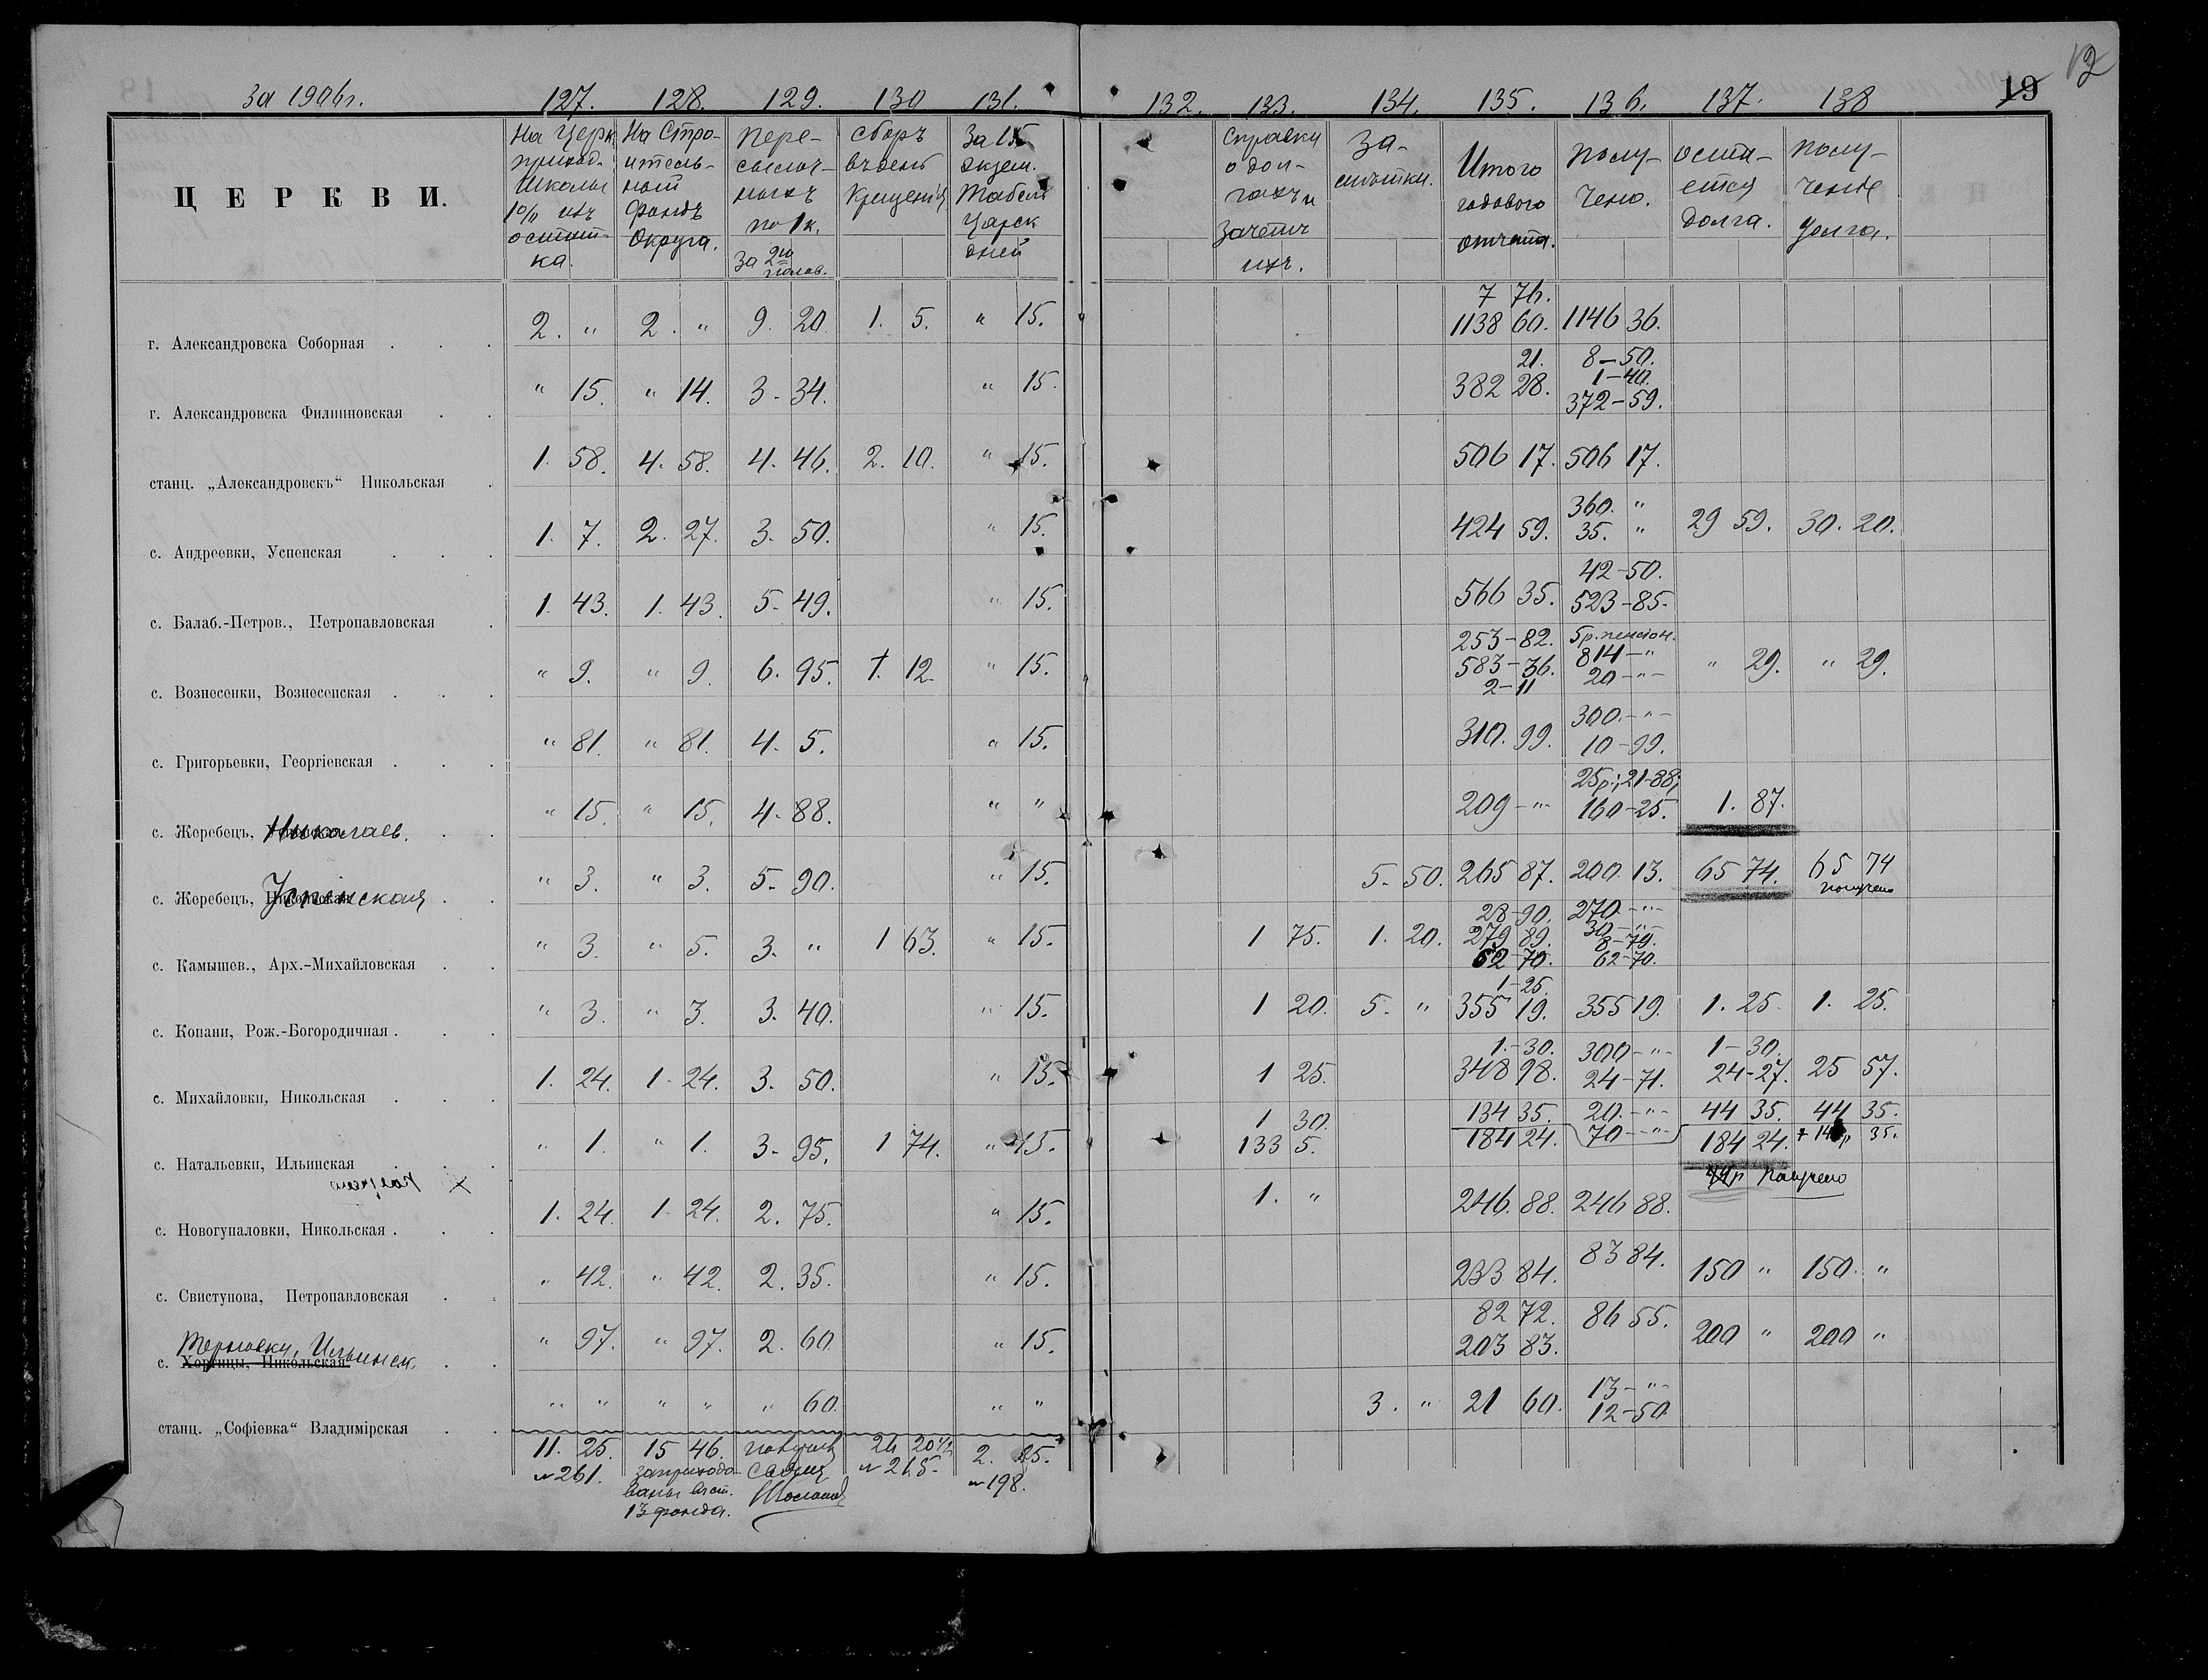 12
19
за 1906г. 127. 128. 129. 130 131. 132. 133. 134. 135. 136. 137. 138
ЦЕРКВИ.
На Церк. приход. Школы 1% изъ остат-ка.
На Строительный фондъ Округа.
Пересылочныхъ по 1 к. за 2ю полов.
Сборъ въ день Крещенія
За 15 экзем. Табели Царск дней
Справки о долгахъ и зачетъ ихъ.
За-
Итого годового отчета.
Получено.
Остается долга.
Получено долга.
г. Александровска Соборная . . . 2. " 2. " 9. 20. 1. 5. " 15. 7 76. 1138 60. 1146 36.
г. Александровска Филипповская . . " 15. " 14. 3-34. " 15. 21. 382 28. 8-50. 1-40. 372-59.
станц. „Александровскъ“ Никольская . 1. 58. 4. 58. 4. 46. 2. 10. " 15. 506 17. 506 17.
с. Андреевки, Успенская . . . 1. 7. 2. 27. 3. 50. " 15. 424 59. 360. " 35. " 29 59. 30. 20.
с. Балаб.-Петров., Петропавловская . 1. 43. 1. 43. 5-49. " 15. 566 35. 42-50. 523-85.
с. Вознесенки, Вознесенская . . . " 9. " 9. 6. 95. 1. 12. " 15. 253-82. 583-36. 2-11 5р. пенсіон. 814-" 20-"- " 29. " 29.
с. Григорьевки, Георгіевская . . . " 81. " 81. 4. 5. " 15. 310. 99. 300.-"- 10-99.
с. Жеребецъ, Николаев. . . " 15. " 15. 4-88. " " 209-"- 25р.; 21-88; 160-25. 1. 87.
с. Жеребецъ, Успенская . . " 3. " 3. 5-90. " 15. 5-50. 265 87. 200. 13. 65 74. 65 74 получено
с. Камышев., Арх.-Михайловская . . " 3. " 5. 3. " 1 63. " 15. 1 75. 1. 20. 28-90. 279 89. 62-70. 270-"- 30-"- 8-79. 62-70.
с. Копани, Рож.-Богородичная . . . " 3. " 3. 3. 40. " 15. 1 20. 5. " 1-25. 355 19. 355 19. 1. 25. 1. 25.
с. Михайловки, Никольская . . . 1. 24. 1. 24. 3. 50. " 15. 1 25. 1.-30. 348 98. 300-"- 24-71. 1-30. 24-27. 25 57.
с. Натальевки, Ильинская . . . " 1. " 1. 3-95. 1 74. " 15. 1 30. 133 5. 134 35. 184 24. 20.-"- 70-"- 44 35. 184 24. 44 35. 35.
получено
получено
с. Новогупаловки, Никольская . . . 1. 24. 1. 24. 2. 75. " 15. 1. " 246. 88. 246 88.
с. Свистунова, Петропавловская . . " 42. " 42. 2. 35. " 15. 233 84. 83 84. 150 " 150. "
Терновки, Ильинск.
с. Хортицы, Никольская . . " 97. " 97. 2. 60. " 15. 82 72. 203 83. 86 55. 200 " 200 "
станц. „Софіевка“ Владимірская . . " " " " " 60. " " 3. " 21 60. 13-"- 12-50.
11. 25. 15 46. 2.
№ 261. заприходо- № 198.
ваны
фонда.